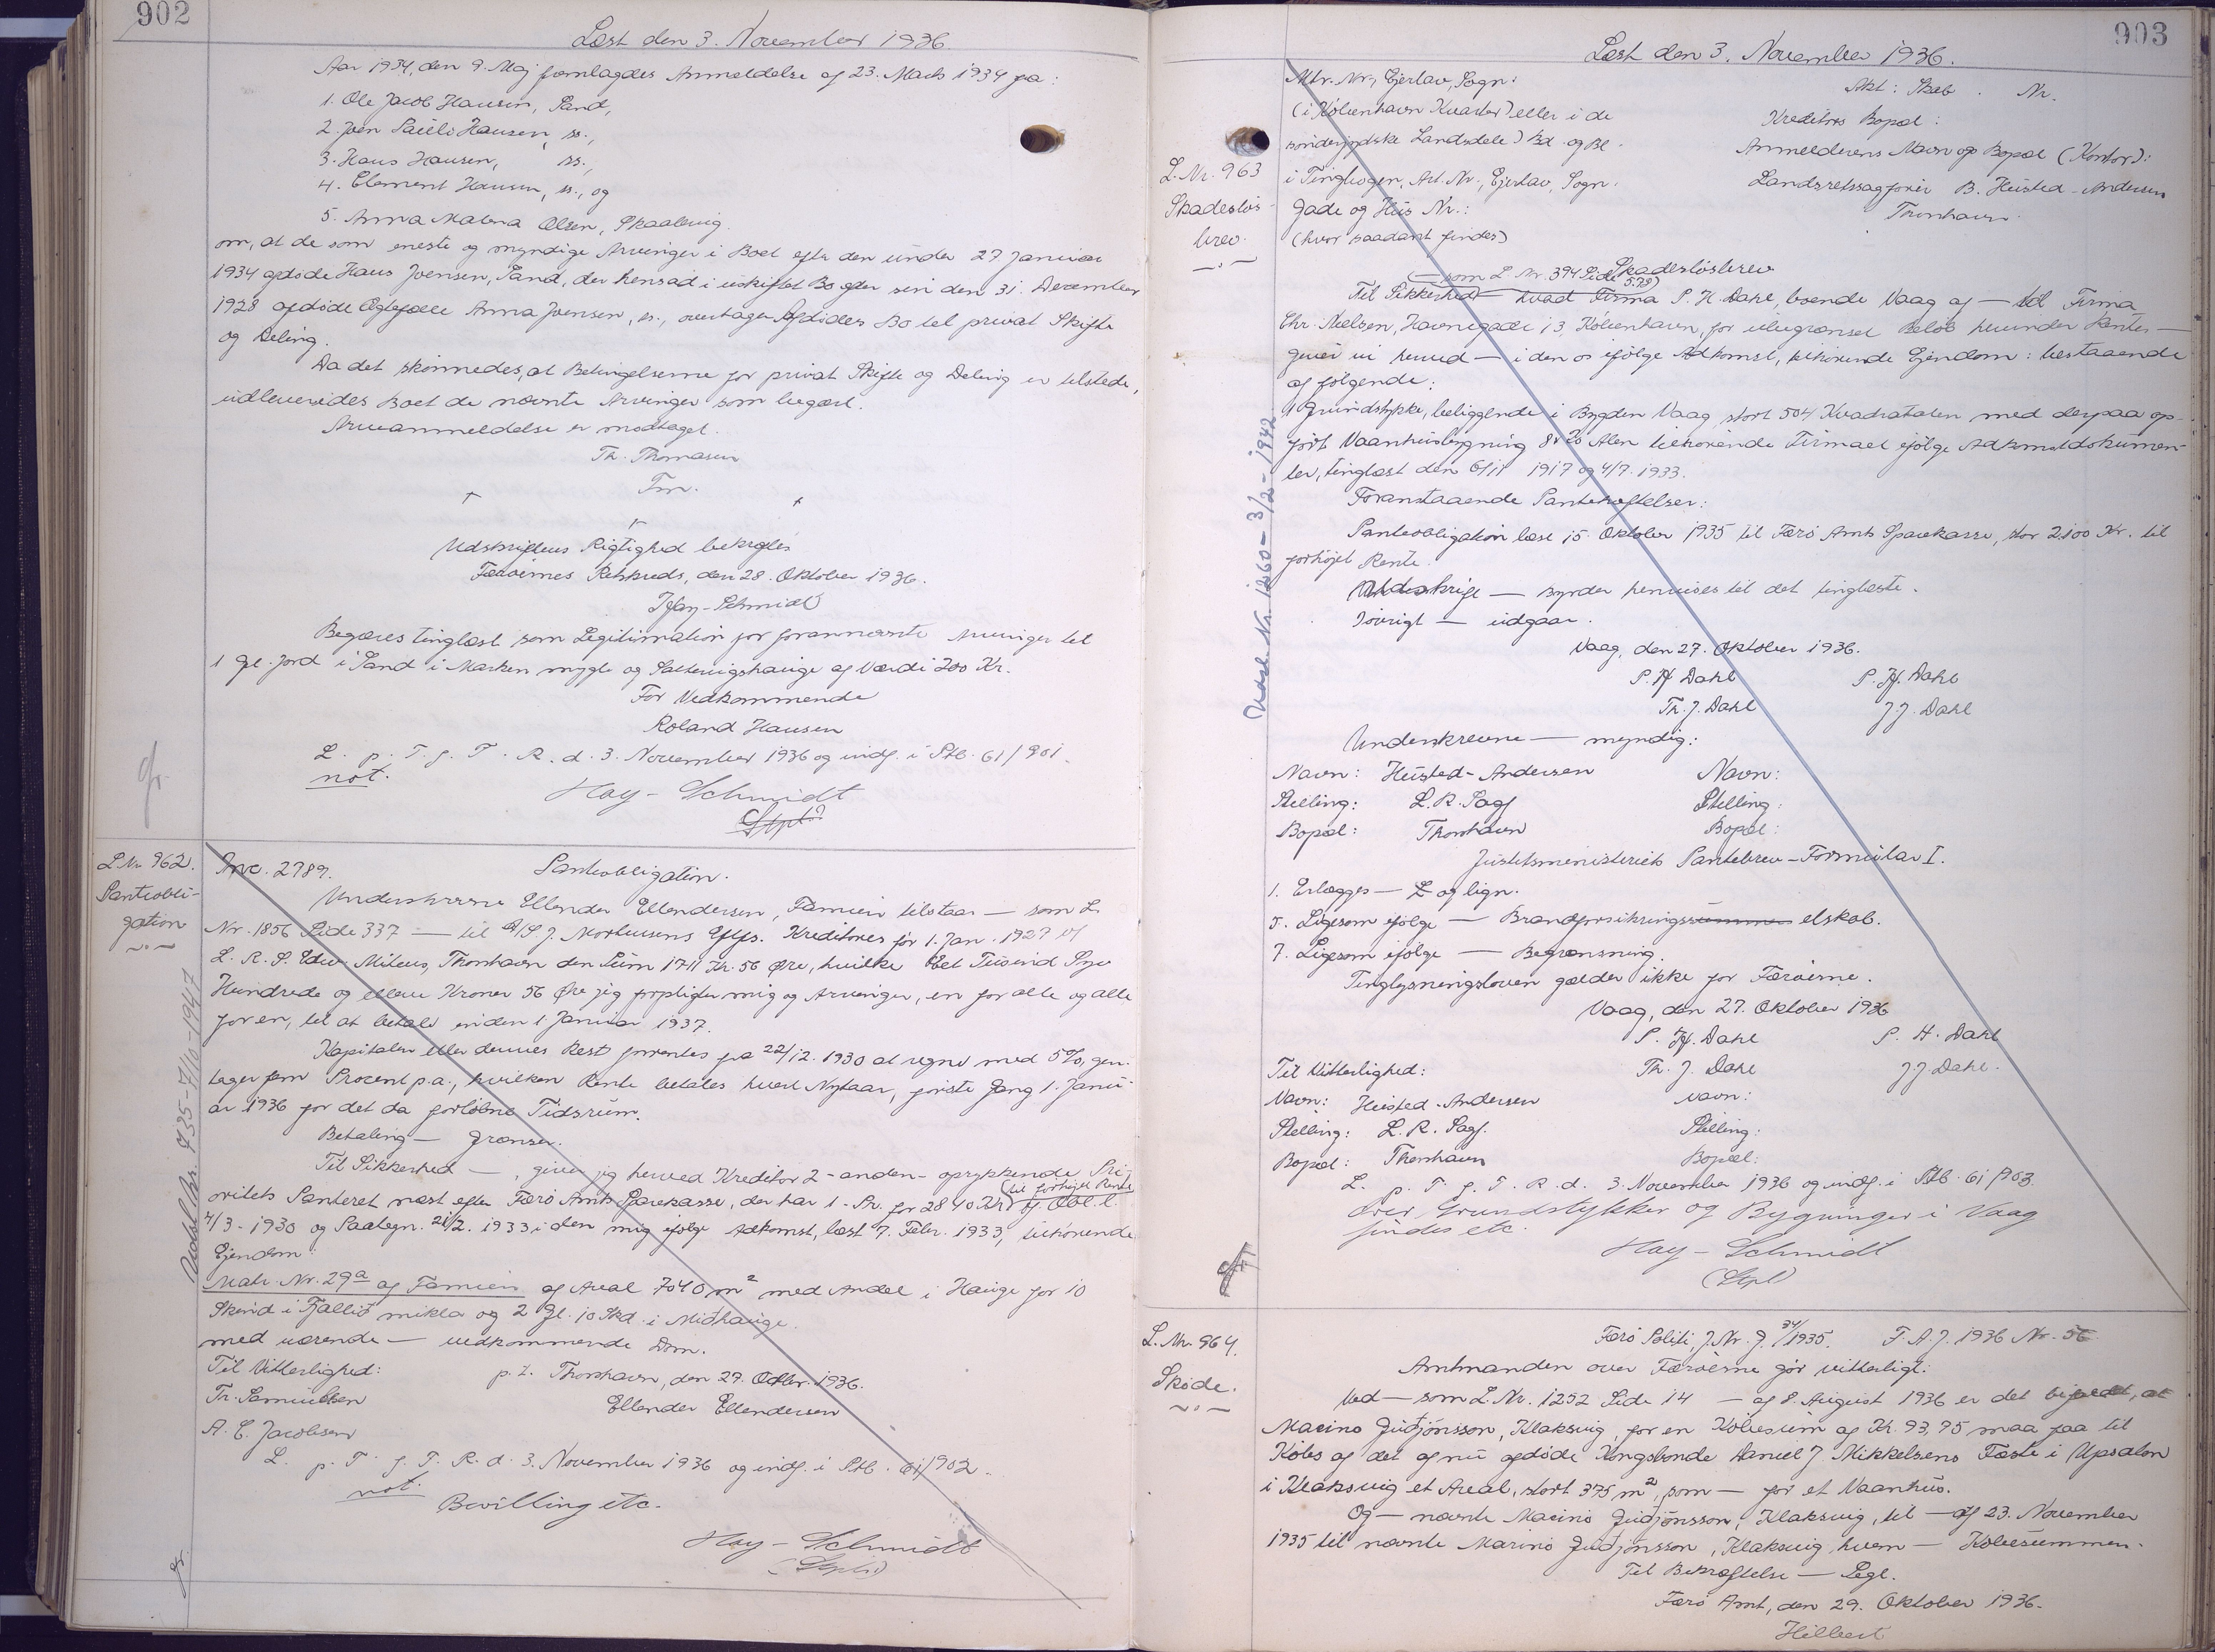 902
Læst den 3. November 1936
Aar 1934, den 9. Maj fremlagdes Anmeldelse af 23. Marts 1934 fra:
1. Ole Jacob Hansen, Sand,
2. Joen Pauli Hansen, ss.,
3. Hans Hansen, ss.,
4. Clement Hansen, ss., og
5. Anna Malena Olsen, Skaalevig.
om, at de som eneste og myndige Arvinger i Boet efter den under 27 Januar
1934 afdøde Hans Joensen, Sand, der hensad i uskiftet Bo efter sin den 31. December
1928 afdøde Ægtefælle Anna Joensen, ss., overtager Afdødes Bo til privat Skifte
og Deling.
Da det skønnedes, at Betingelserne for privat Skifte og Deling er tilstede,
udleveredes Boet de nævnte Arvinger som begært.
Arveanmeldelse er modtaget.
Th. Thomasen
Fm.
Udskriftens Rigtighed bekræftes
Færøernes Retskreds, den 28. Oktober 1936.
Hay-Schmidt
Begæres tinglæst som Legitimation for forannævnte Arvinger til
1 Gl. Jord i Sand i Marken mygle og Saltevigshauge af Værdi 200 Kr.
For Vedkommende
Roland Hansen
L. p. T. f. T. R. d. 3. November 1936 og indf. i Ptb. 61/901.
not.
Hay-Schmidt
L Nr. 962.
Panteobli-
gation
Udsl. Nr. 735-7/10-1947
Anc. 2789. Panteobligation.
Underskrevne Ellender Ellendersen, Famien tilstaar — som L.
Nr. 1856 Side 337 — til A/S J. Mortensens Eftfs. Kreditorer før 1. Jan. 1927 v/
L. R. S. Edw. Mitens, Thorshavn den Sum 1711 Kr. 56 Øre, hvilke Eet Tusind Syv
Hundrede og elleve Kroner 56 Øre jeg forpligter mig og Arvinger, en for alle og alle
for en, til at betale inden 1 Januar 1937.
Kapitalen eller dennes Rest forrentes fra 22/12. 1930 at regne med 5%, gen-
tager fem Procent p.a., hvilken Rente betales hvert Nytaar, første Gang 1. Janu-
ar 1936 for det da forløbne Tidsrum.
Betaling — Grænser.
Til Sikkerhed —, giver jeg herved Kreditor 2 - anden - oprykkende Pri-
oritets Panteret næst efter Færø Amts Sparekasse, der har 1. Pr. for 2840 Kr (til forhøjet Rente) if. Obl. l.
4/3 - 1930 og Paategn. 21/2. 1933 i den mig ifølge Adkomst, læst 7. Febr. 1933, tilhørende
Ejendom:
Matr. Nr. 29a af Famien af Areal 7040 m2 med Andel i Hauge for 10
Skind i Fjallið mikla og 2 Gl. 10 Skd. i Miðhauge.
med værende — vedkommende Dom.
Til Vitterlighed: p.t. Thorshavn, den 29. Oktbr. 1936.
Tr. Samuelsen Ellender Ellendersen
A. C. Jacobsen
L. p. T. f. T. R. d. 3. November 1936 og indf. i Ptb. 61/902.
not.
Bevilling etc.
Hay-Schmidt
903
Læst den 3. November 1936.
Mtr. Nr., Ejerlav, Sogn: Akt: Skab . Nr.
(i København Kvarter) eller i de Kreditors Bopæl:
sønderjydske Landsdele) Bd. og Bl. Anmelderens Navn og Bopæl (Kontor):
L. Nr. 963
Skadesløs-
brev.
i Tingbogen, Art. Nr., Ejerlav, Sogn. Landsretssagfører B. Heisted-Andersen
Gade og Hus Nr.: Thorshavn.
(hvor saadant findes)
Skadesløsbrev
(— som L. Nr. 394 Side 579)
Til Sikkerhed — hvad Firma P. H. Dahl, boende Vaag af — til Firma
Chr. Nielsen, Havnegade 13, København, for ubegrænset Beløb herunder Renter —
giver vi herved — i den os ifølge Adkomst, tilhørende Ejendom: bestaaende
af følgende:
1 Grundstykke, beliggende i Bygden Vaag, stort 504 Kvadratalen med derpaa op-
ført Vaanhusbygning 8 x 20 Alen tilhørende Firmaet ifølge Adkomstdokumen-
ter, tinglæst den 6/11 1917 og 4/7. 1933.
Foranstaaende Pantehæftelser:
Panteobligation læst 15 Oktober 1935 til Færø Amts Sparekasse, stor 2100 Kr. til
forhøjet Rente.
Udsl. Nr. 1260 - 3/2 - 1942
Udskrift — Byrder henvises til det tinglæste.
Iøvrigt — udgaar.
Vaag, den 27. Oktober 1936.
P. H. Dahl P. H. Dahl
Th. J. Dahl J. J. Dahl
Underskrevne — myndig:
Navn: Heisted-Andersen Navn:
Stilling: L. R. Sagf Stilling:
Bopæl: Thorshavn Bopæl:
Justitsministeriets Pantebrev-Formular I.
1. Erlægges — L og lign.
5. Ligesom ifølge — Brandforsikringsselskab.
7. Ligesom ifølge — Begrænsning.
Tinglysningsloven gælder ikke for Færøerne.
Vaag, den 27. Oktober 1936
P. H. Dahl P. H. Dahl
Til Vitterlighed: Th. J. Dahl J. J. Dahl.
Navn: Heisted-Andersen Navn:
Stilling: L. R. Sagf. Stilling:
Bopæl: Thorshavn Bopæl:
L. p. T. f. T. R. d. 3. November 1936 og indf. i Ptb. 61/903.
Over Grundstykker og Bygninger i Vaag
findes etc.
Hay-Schmidt
L. Nr. 964.
Skøde.
Færø Politi, J. Nr. J. 34/1935. F. A. J. 1936 Nr. 56
Amtmanden over Færøerne gør vitterligt:
Ved — som L. Nr. 1252 Side 14 — af 8. August 1936 er det bifaldt, at
Marino Guðjónsson, Klaksvig, for en Købesum af Kr. 93,75 maa faa til
Købs af det af nu afdøde Kongsbonde Daniel J Mikkelsens Fæste i Upsalon
i Klaksvig et Areal, stort 375 m2, som — for et Vaanhus.
Og — nævnte Marino Guðjónsson, Klaksvig, til — af 23. November
1935 til nævnte Marino Guðjónsson, Klaksvig, hvem — Købesummen.
Til Bekræftelse — Segl.
Færø Amt, den 29. Oktober 1936.
Hilbert